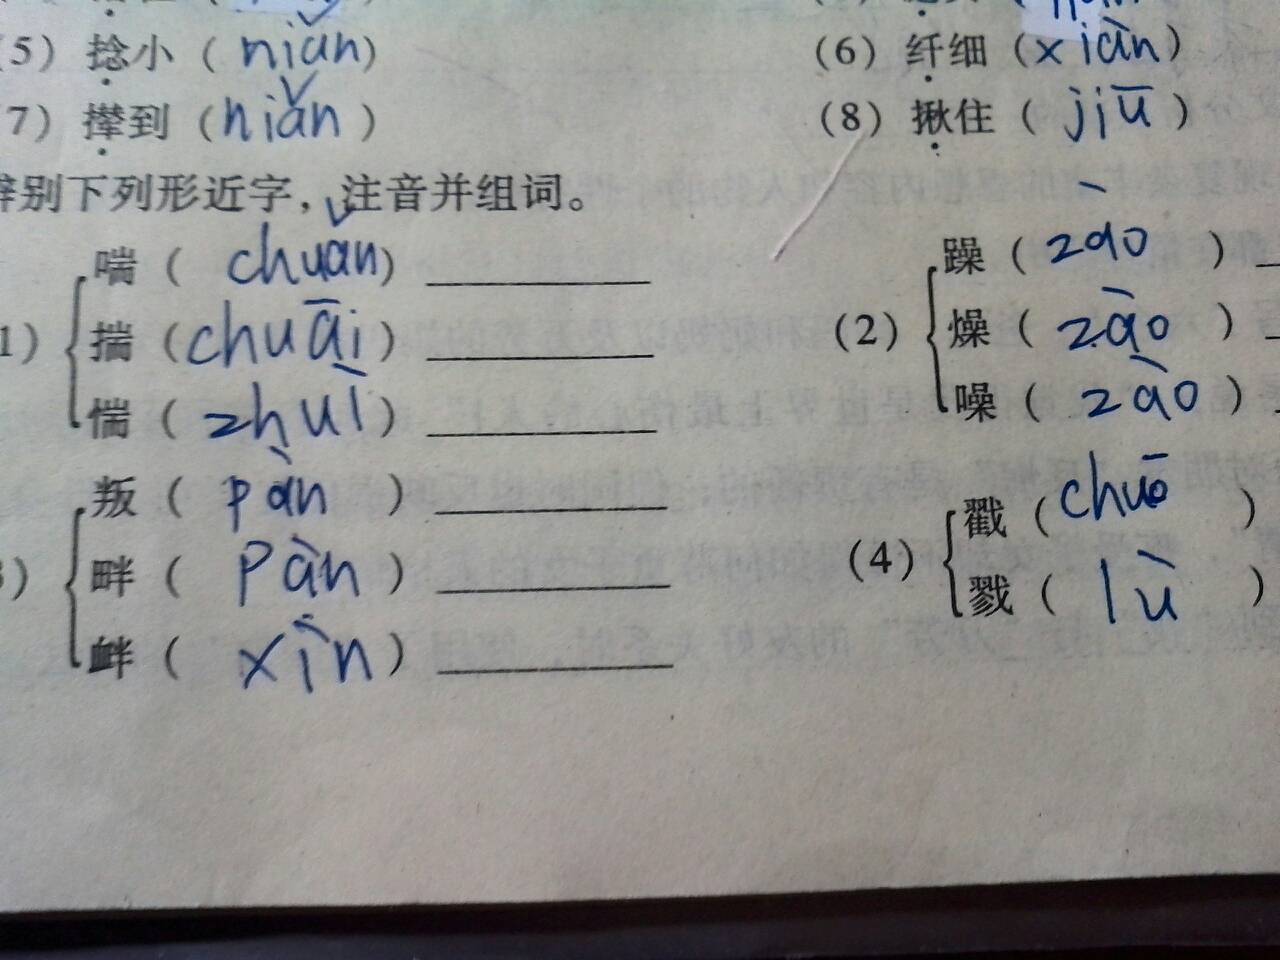 (5) 捻小 ( niǎn) (6) 纤细 (xiàn)
(7) 撵到 (niǎn ) (8) 揪住 ( jiū )
辨别下列形近字，注音并组词。
1) 喘 ( chuǎn) (2) 躁 ( zào )
揣 (chuāi) 燥 ( zào )
惴 ( zhuì) 噪 ( zào )
3) 叛 ( pàn ) (4) 戳 (chuō )
畔 ( pàn ) 戮 ( lù )
衅 ( xìn )